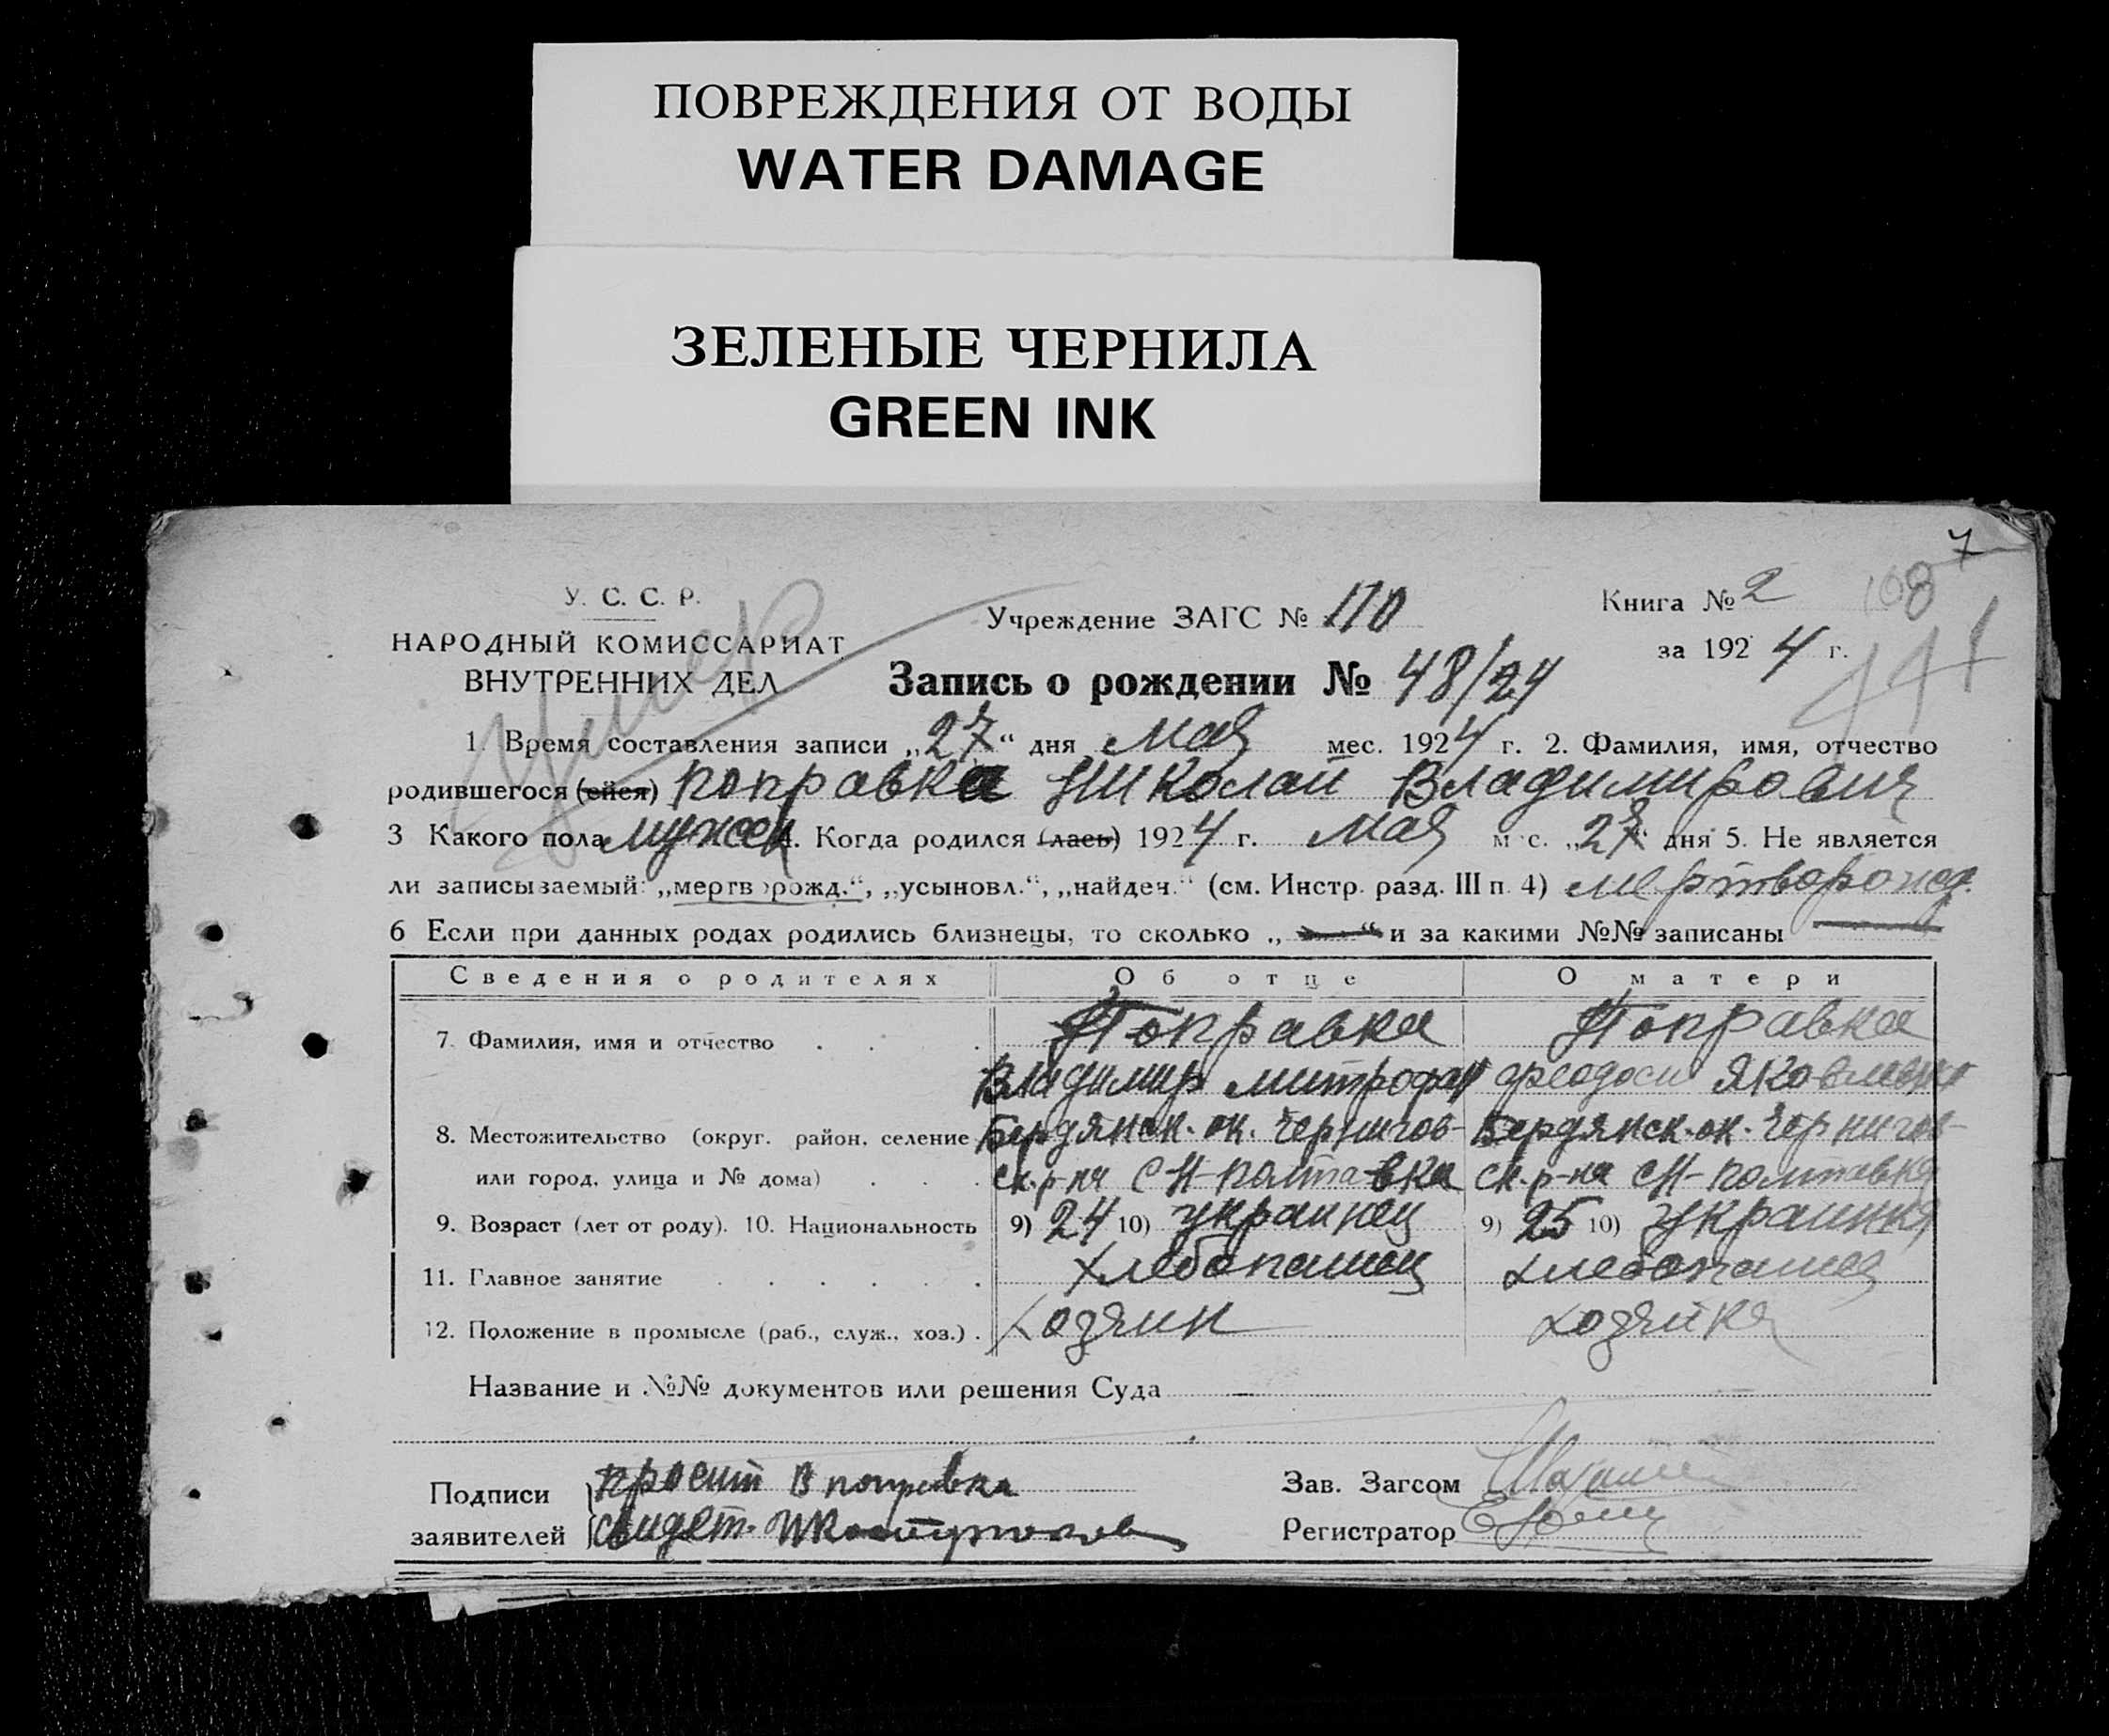 ПОВРЕЖДЕНИЯ ОТ ВОДЫ
WATER DAMAGE
ЗЕЛЕНЫЕ ЧЕРНИЛА
GREEN INK
7
108
У. С. С. Р.
НАРОДНЫЙ КОМИССАРИАТ
ВНУТРЕННИХ ДЕЛ
Умер
Учреждение ЗАГС № 110
Книга № 2
за 1924 г.
Запись о рождении № 48/24
1. Время составления записи „27“ дня мая мес. 1924 г. 2. Фамилия, имя, отчество
родившегося (ейся) Поправка Николай Владимирович
3 Какого пола мужск 4. Когда родился (лась) 1924 г. мая м с. „27“ дня 5. Не является
ли записываемый: „мертв рожд.“, „усыновл.“, „найден.“ (см. Инстр. разд. III п. 4) мертворожд.
6 Если при данных родах родились близнецы, то сколько „ — “ и за какими №№ записаны —
Сведения о родителях Об отце О матери
7. Фамилия, имя и отчество . . . Поправка Поправка
Владимир Митрофан Феодоси Яковлевна
8. Местожительство (округ. район, селение Бердянск. ок. Чернигов- Бердянск. ок. Чернигов-
или город, улица и № дома) . . . ск. р-на с Н-Полтавка ск. р-на с Н-Полтавка
9. Возраст (лет от роду). 10. Национальность 9) 24 10) украинец 9) 25 10) украинка
11. Главное занятие . . . . . . хлебопашец хлебопашец
12. Положение в промысле (раб., служ., хоз.) . хозяин хозяйка
Название и №№ документов или решения Суда —
Подписи просит В Поправка Зав. Загсом
заявителей свидет. Регистратор